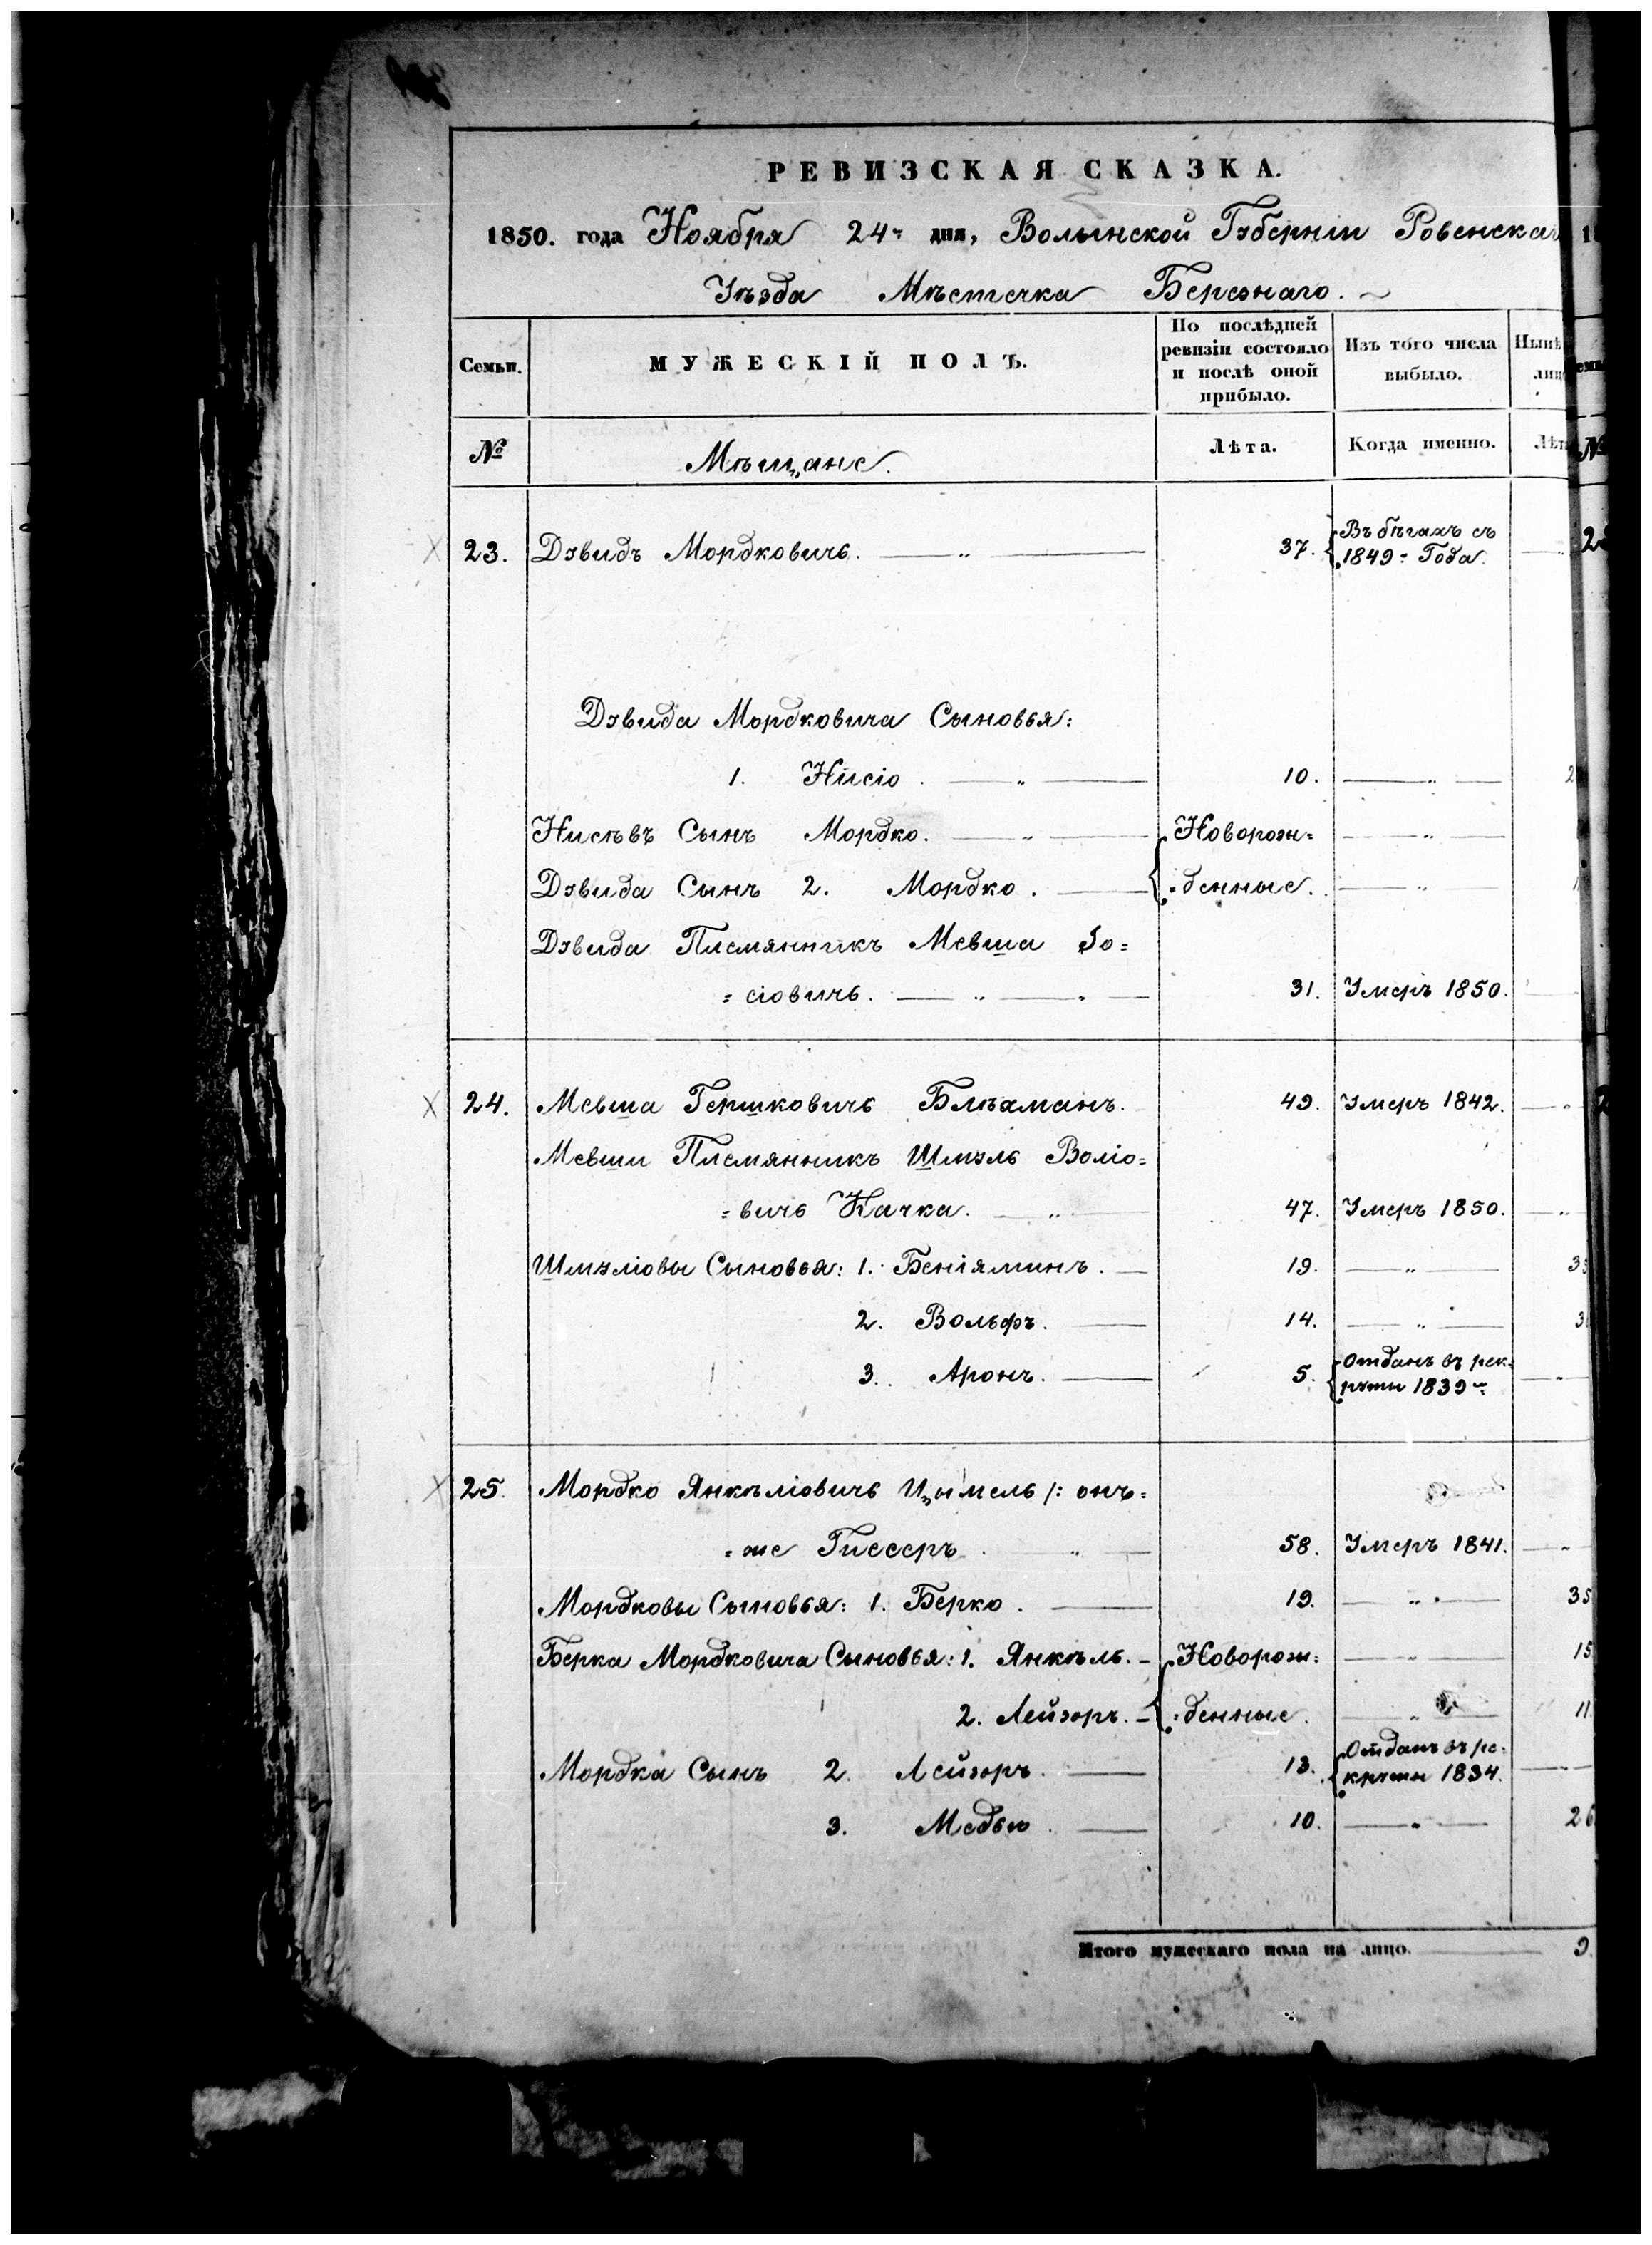 РЕВИЗСКАЯ СКАЗКА.
1850. года Ноября 24 дня, Волынской Губерніи Ровенскаг
Уѣзда Мѣстечка Березнаго.
Семьи.
МУЖЕСКІЙ ПОЛЪ.
По послѣдней ревизіи состояло и послѣ оной прибыло.
Изъ того числа выбыло.
Нынѣ лиц
№
Мѣщане.
Лѣта.
Когда именно.
Лѣт
23. Дувидъ Мордковичь. 37. Въ бѣгахъ съ
1849: Года.
Дувида Мордковича Сыновья:
1. Нисіо. 10.
Нисѣвъ Сынъ Мордко. Новорож=
Дувида Сынъ 2. Мордко. =денные.
Дувида Племянникъ Мевша Іо=
=сіовичь. 31. Умеръ 1850.
24. Мевша Гершковичь Блъхманъ. 49. Умеръ 1842.
Мевши Племянникъ Шмуль Воліо=
=вичь Качка. 47. Умеръ 1850.
Шмуліовы Сыновья: 1. Беніяминъ. 19.
2. Вольфъ. 14.
3. Аронъ. 5. Отданъ въ рек=
руты 1839
25. Мордко Янкѣліовичь Цымель /: онъ=
=же Гиссеръ 58. Умеръ 1841.
Мордковы Сыновья: 1. Берко. 19. 35
Берка Мордковича Сыновья: 1. Янкѣль. Новорож= 15
2. Лейзоръ. =денные. 11
Мордка Сынъ 2. Лейзоръ. 13. Отданъ въ ре=
круты 1834.
3. 10. 26
Итого мужескаго пола на лицо. 9.